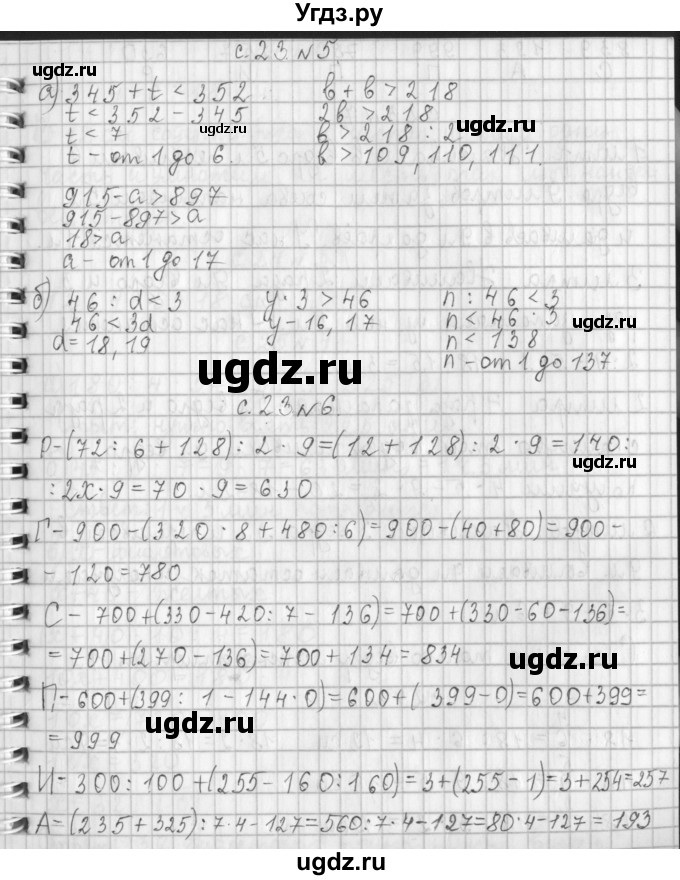 Угдз.ру
с. 23. №5.
а) 345 + t < 352
t < 352 - 345
t < 7
t - от 1 до 6.
в + в > 218
2в > 218
в > 218 : 2
в > 109, 110, 111.
915 - а > 897
915 - 897 > а
18 > а
а - от 1 до 17
б) 46 : d < 3
46 < 3d
d = 18, 19
у · 3 > 46
у - 16, 17
n : 46 < 3
n < 46 · 3
n < 138
n - от 1 до 137
с. 23 №6.
Р - (72 : 6 + 128) : 2 · 9 = (12 + 128) : 2 · 9 = 140 :
: 2х · 9 = 70 · 9 = 630
Г - 900 - (320 · 8 + 480 : 6) = 900 - (40 + 80) = 900 -
- 120 = 780
С - 700 + (330 - 420 : 7 - 136) = 700 + (330 - 60 - 136) =
= 700 + (270 - 136) = 700 + 134 = 834
П - 600 + (399 : 1 - 144 · 0) = 600 + (399 - 0) = 600 + 399 =
= 999
И - 300 : 100 + (255 - 160 : 160) = 3 + (255 - 1) = 3 + 254 = 257
А = (235 + 325) : 7 · 4 - 127 = 560 : 7 · 4 - 127 = 80 · 4 - 127 = 193
ugdz.ru
ugdz.ru
ugdz.ru
ugdz.ru
ugdz.ru
ugdz.ru
ugdz.ru
ugdz.ru
ugdz.ru
ugdz.ru